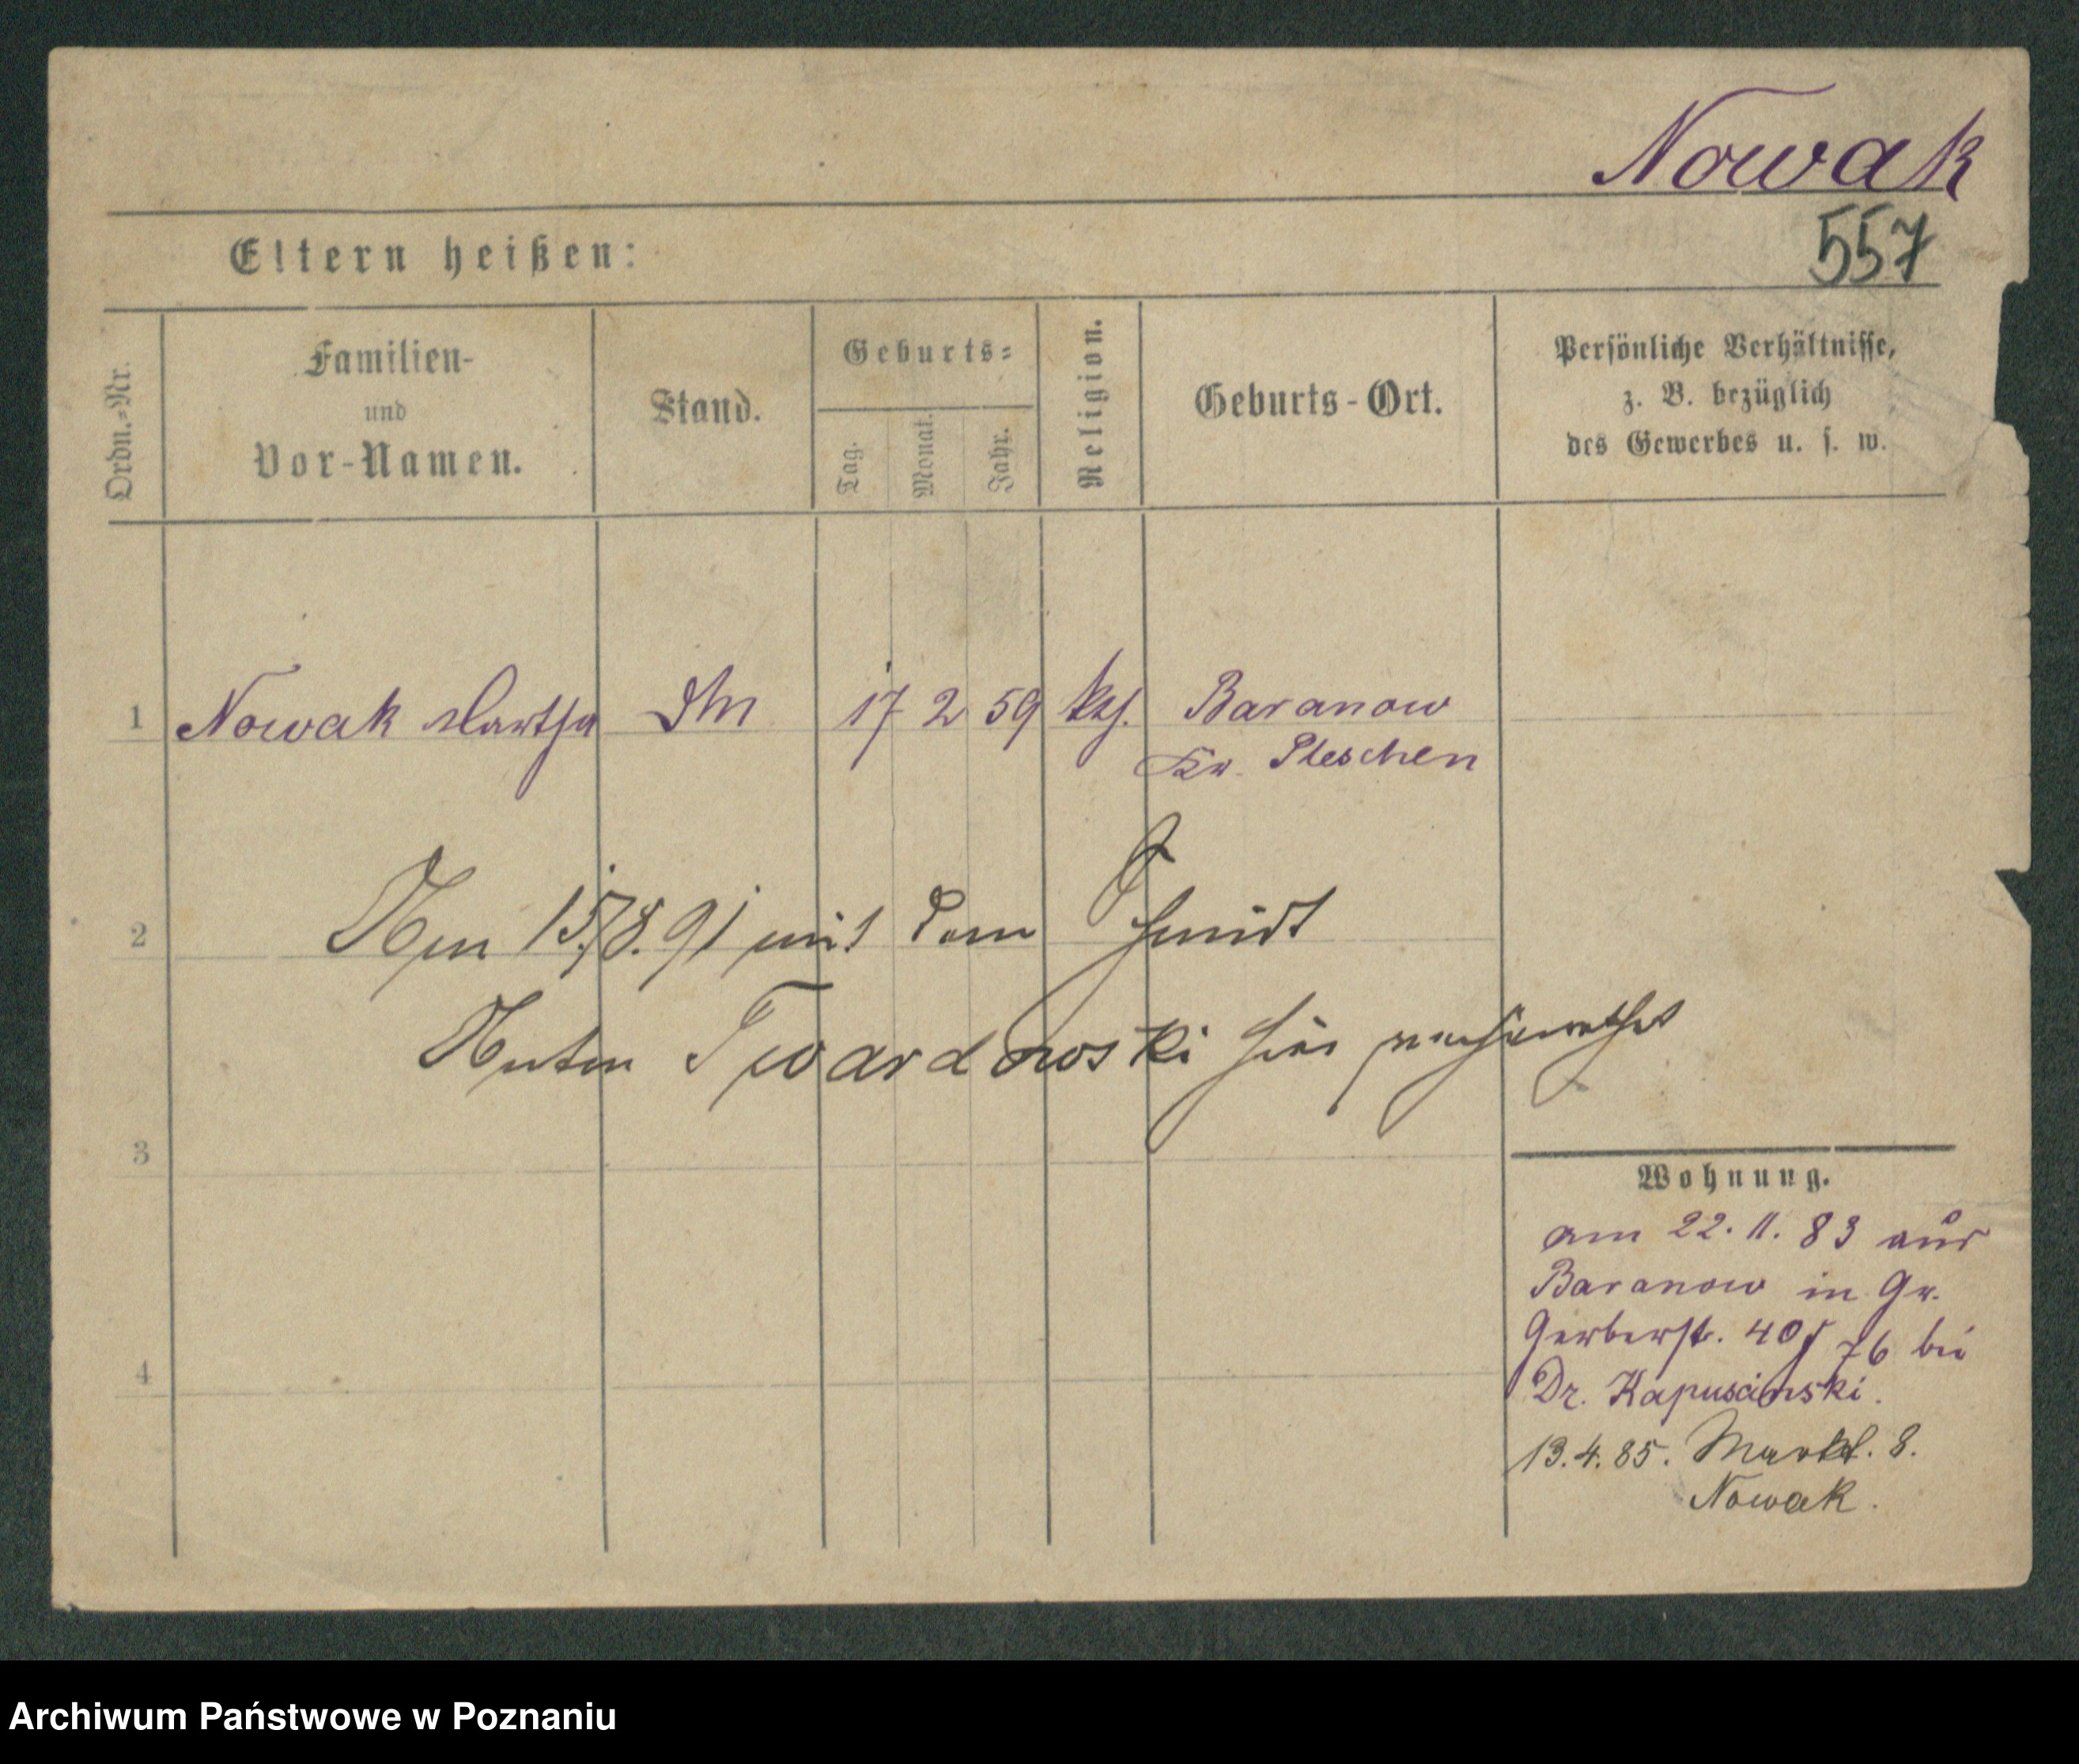 Nowak
557
Eltern heißen:
Ordn.-Nr.
Familien-
und
Vor-Namen.
Stand.
Geburts-
Tag.
Monat.
Jahr.
Religion.
Geburts-Ort.
Persönliche Verhältnisse,
z. B. bezüglich
des Gewerbes u. s. w.
1 Nowak Martha 17 2 59 kth. Baranow
Kr. Pleschen
2 Am 15/8.91 mit dem Schmidt
Anton Twardowski hier verheirathet
3
Wohnung.
am 22.11.83 aus
Baranow in Gr.
Gerberstr. 40 76 bei
4
Dr. Kapuscinski.
13.4.85. Markt. 8.
Nowak.
Archiwum Państwowe w Poznaniu